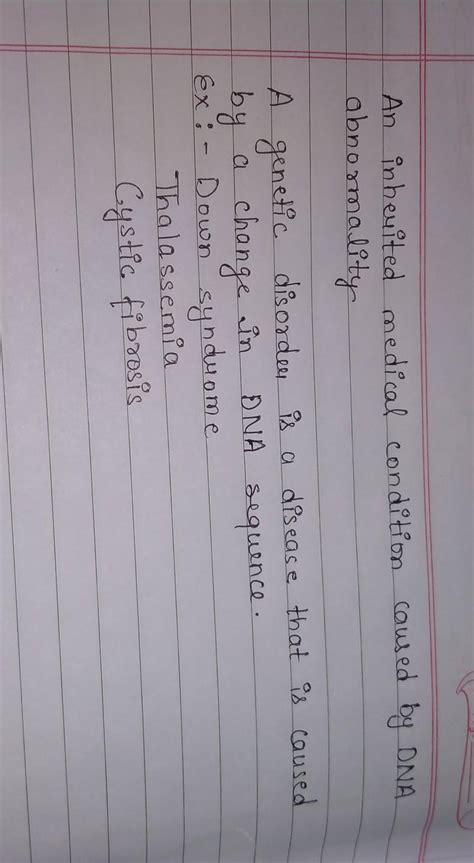 An inherited medical condition caused by DNA
abnormality
A genetic disorder is a disease that is caused
by a change in DNA sequence.
Ex:- Down syndrome
Thalassemia
Cystic fibrosis